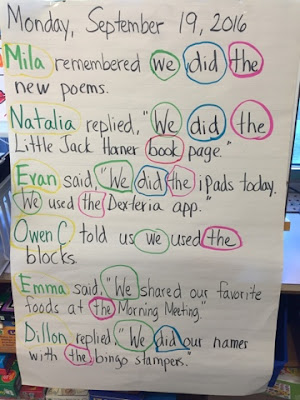 Monday, September 19, 2016
Mila remembered we did the
new poems.
Natalia replied, "We did the
Little Jack Horner book page."
Evan said, "We did the iPads today.
We used the Dexteria app."
Owen C told us we used the
blocks
Emma said, "We shared our favorite
foods at the Morning Meeting."
Dillon replied "We did our names
with the bingo stampers."